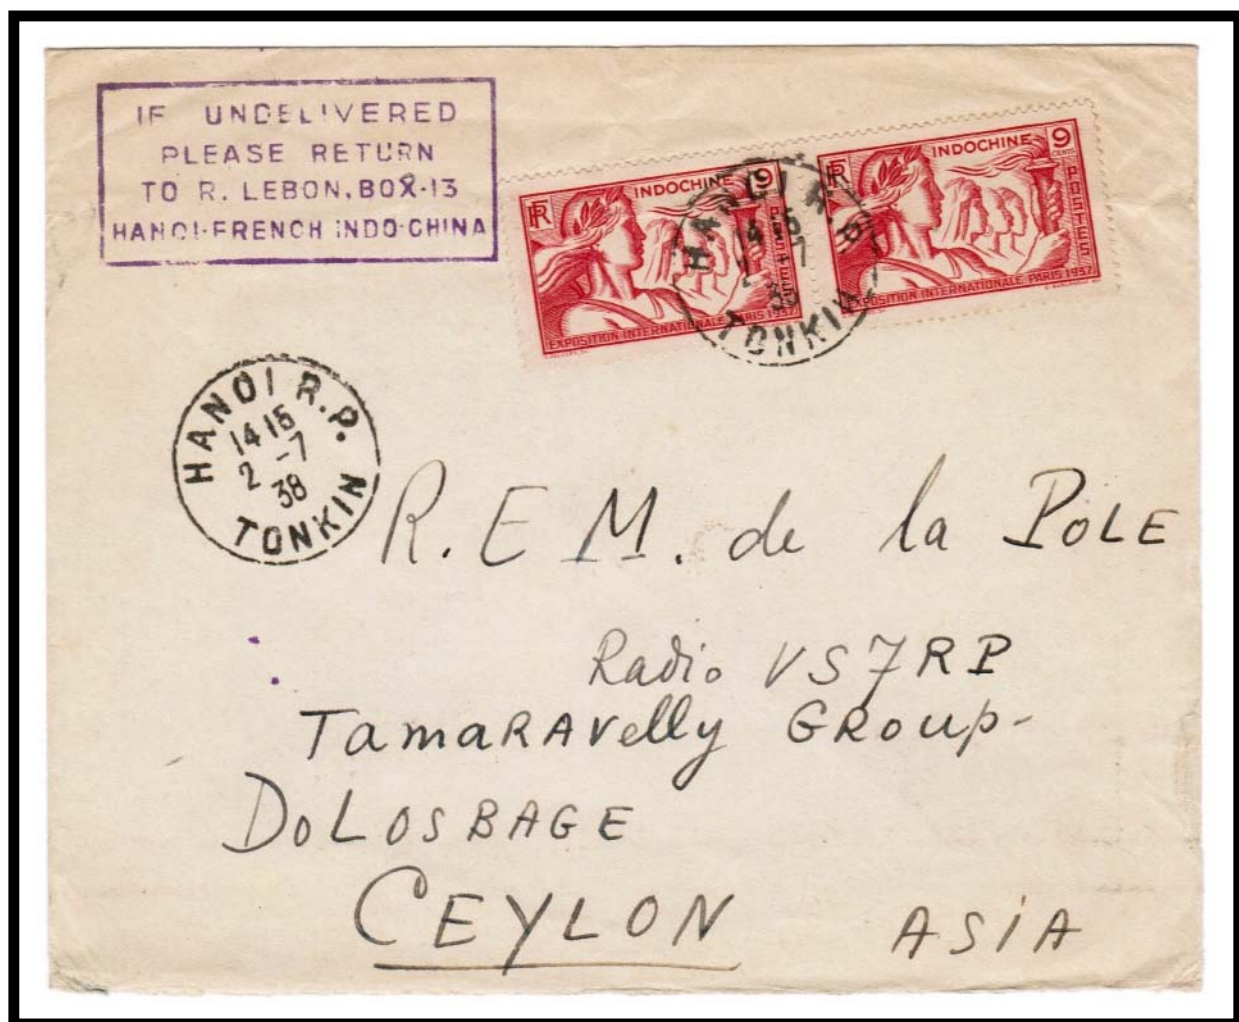 IF UNDELIVERED
PLEASE RETURN
TO R. LEBON, BOX-13
HANOI-FRENCH INDO-CHINA
RF INDOCHINE 9
POSTES
EXPOSITION INTERNATIONALE PARIS 1937
RF INDOCHINE 9
CENTS
POSTES
EXPOSITION INTERNATIONALE PARIS 1937
HANOI R.P.
14 15
2 -7
38
TONKIN
HANOI R.P.
14 15
2 -7
38
TONKIN
R.E M. de la POLE
Radio VS7RP
TamaRAVelly GRoup-
DoLOSBAGE
CEYLON ASiA